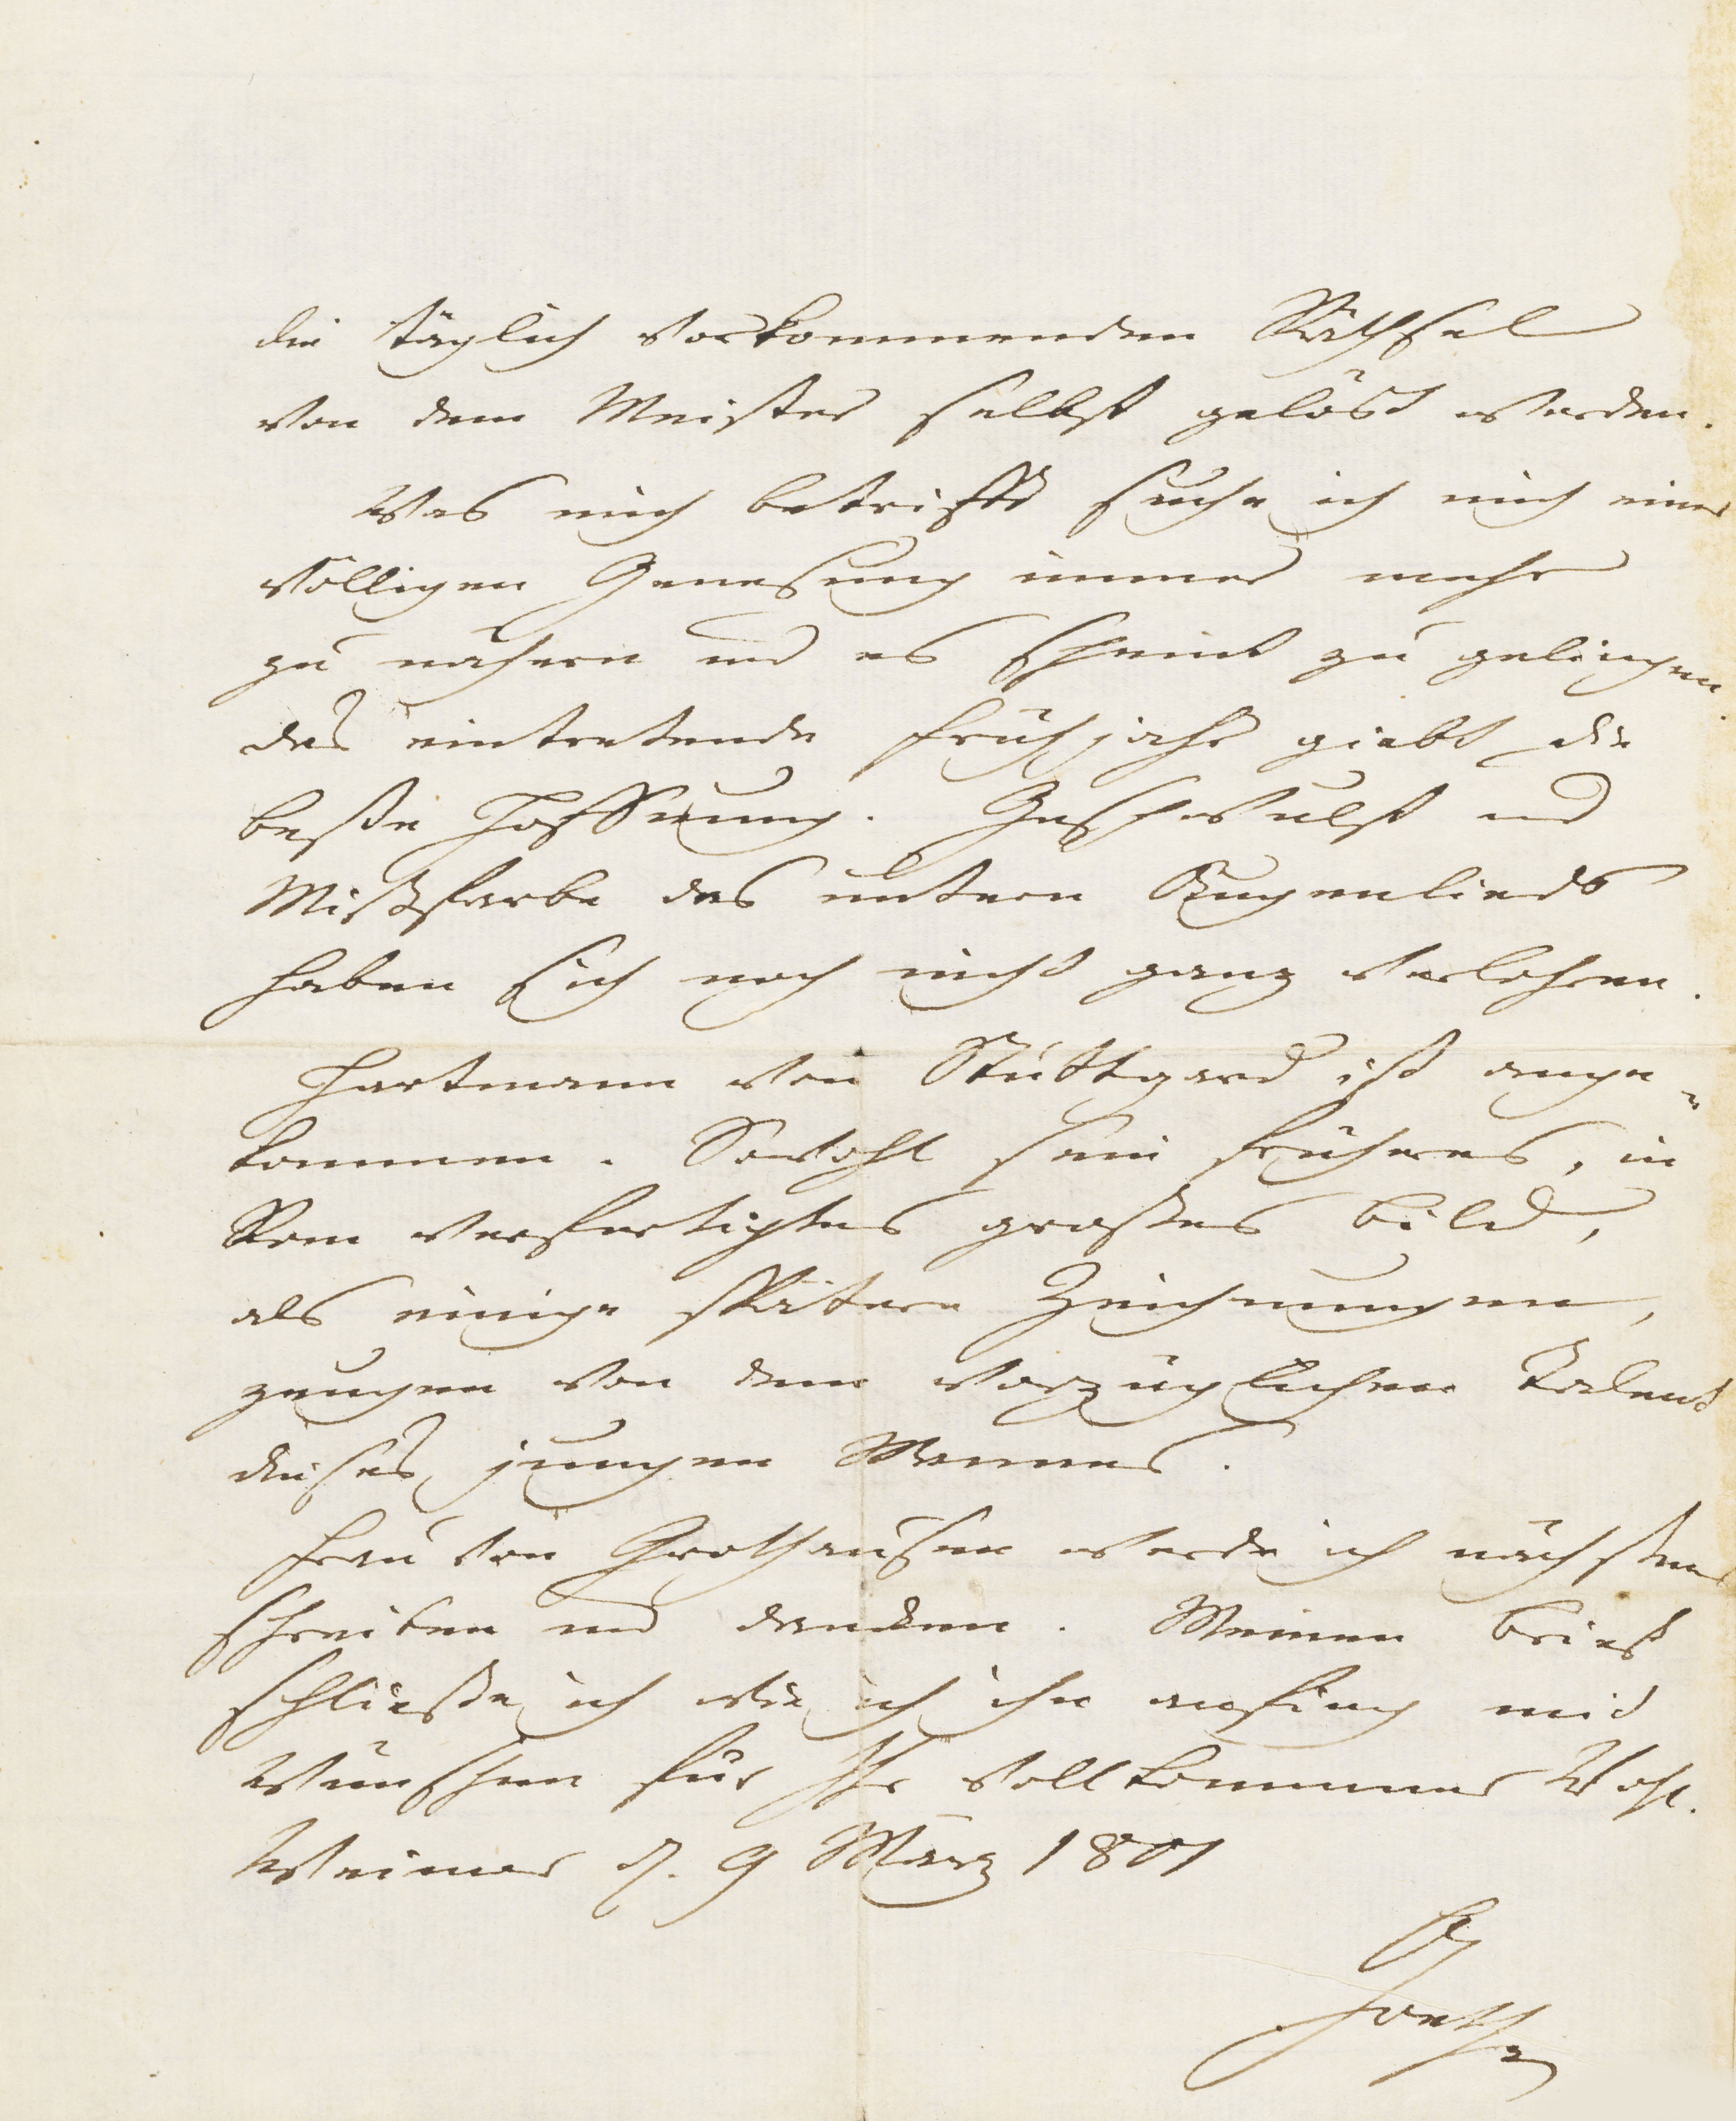 die täglich vorkommenden Räthsel
von dem Meister selbst gelöst werden.
Was mich betrifft suche ich mich einer
völligen Genesung immer mehr
zu nähern und es scheint zu gelingen.
das eintretende Frühjahr giebt die
beste Hoffnung. Geschwulst und
Mißfarbe des untern Augenlieds
haben sich noch nicht ganz verlohren.
Hartmann von Stuttgard ist ange=
kommen. Sowohl sein früheres, in
Rom verfertigtes großes Bild,
als einige spätere Zeichnungen,
zeugen von dem vorzüglichen Talent
dieses jungen Mannes.
Frau von Grothausen werde ich nächstens
schreiben und dancken. Meinen Brief
schließe ich wie ich ihn anfing mit
Wünschen für Ihr vollkommnes Wohl.
Weimar d. 9 März 1801
Goethe